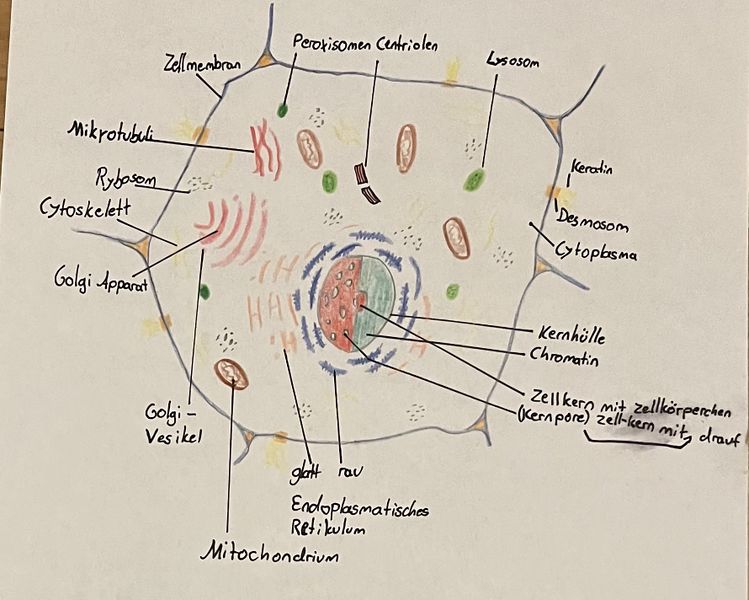 Peroxisomen Centriolen
Lysosom
Zellmembran
Mikrotubuli
Rybosom
Cytoskelett
Golgi Apparat
Keratin
Desmosom
Cytoplasma
Kernhülle
Chromatin
Zellkern mit Zellkörperchen
(Kernpore) Zell-kern mit drauf
Golgi-
Vesikel
glatt rau
Endoplasmatisches
Retikulum
Mitochondrium